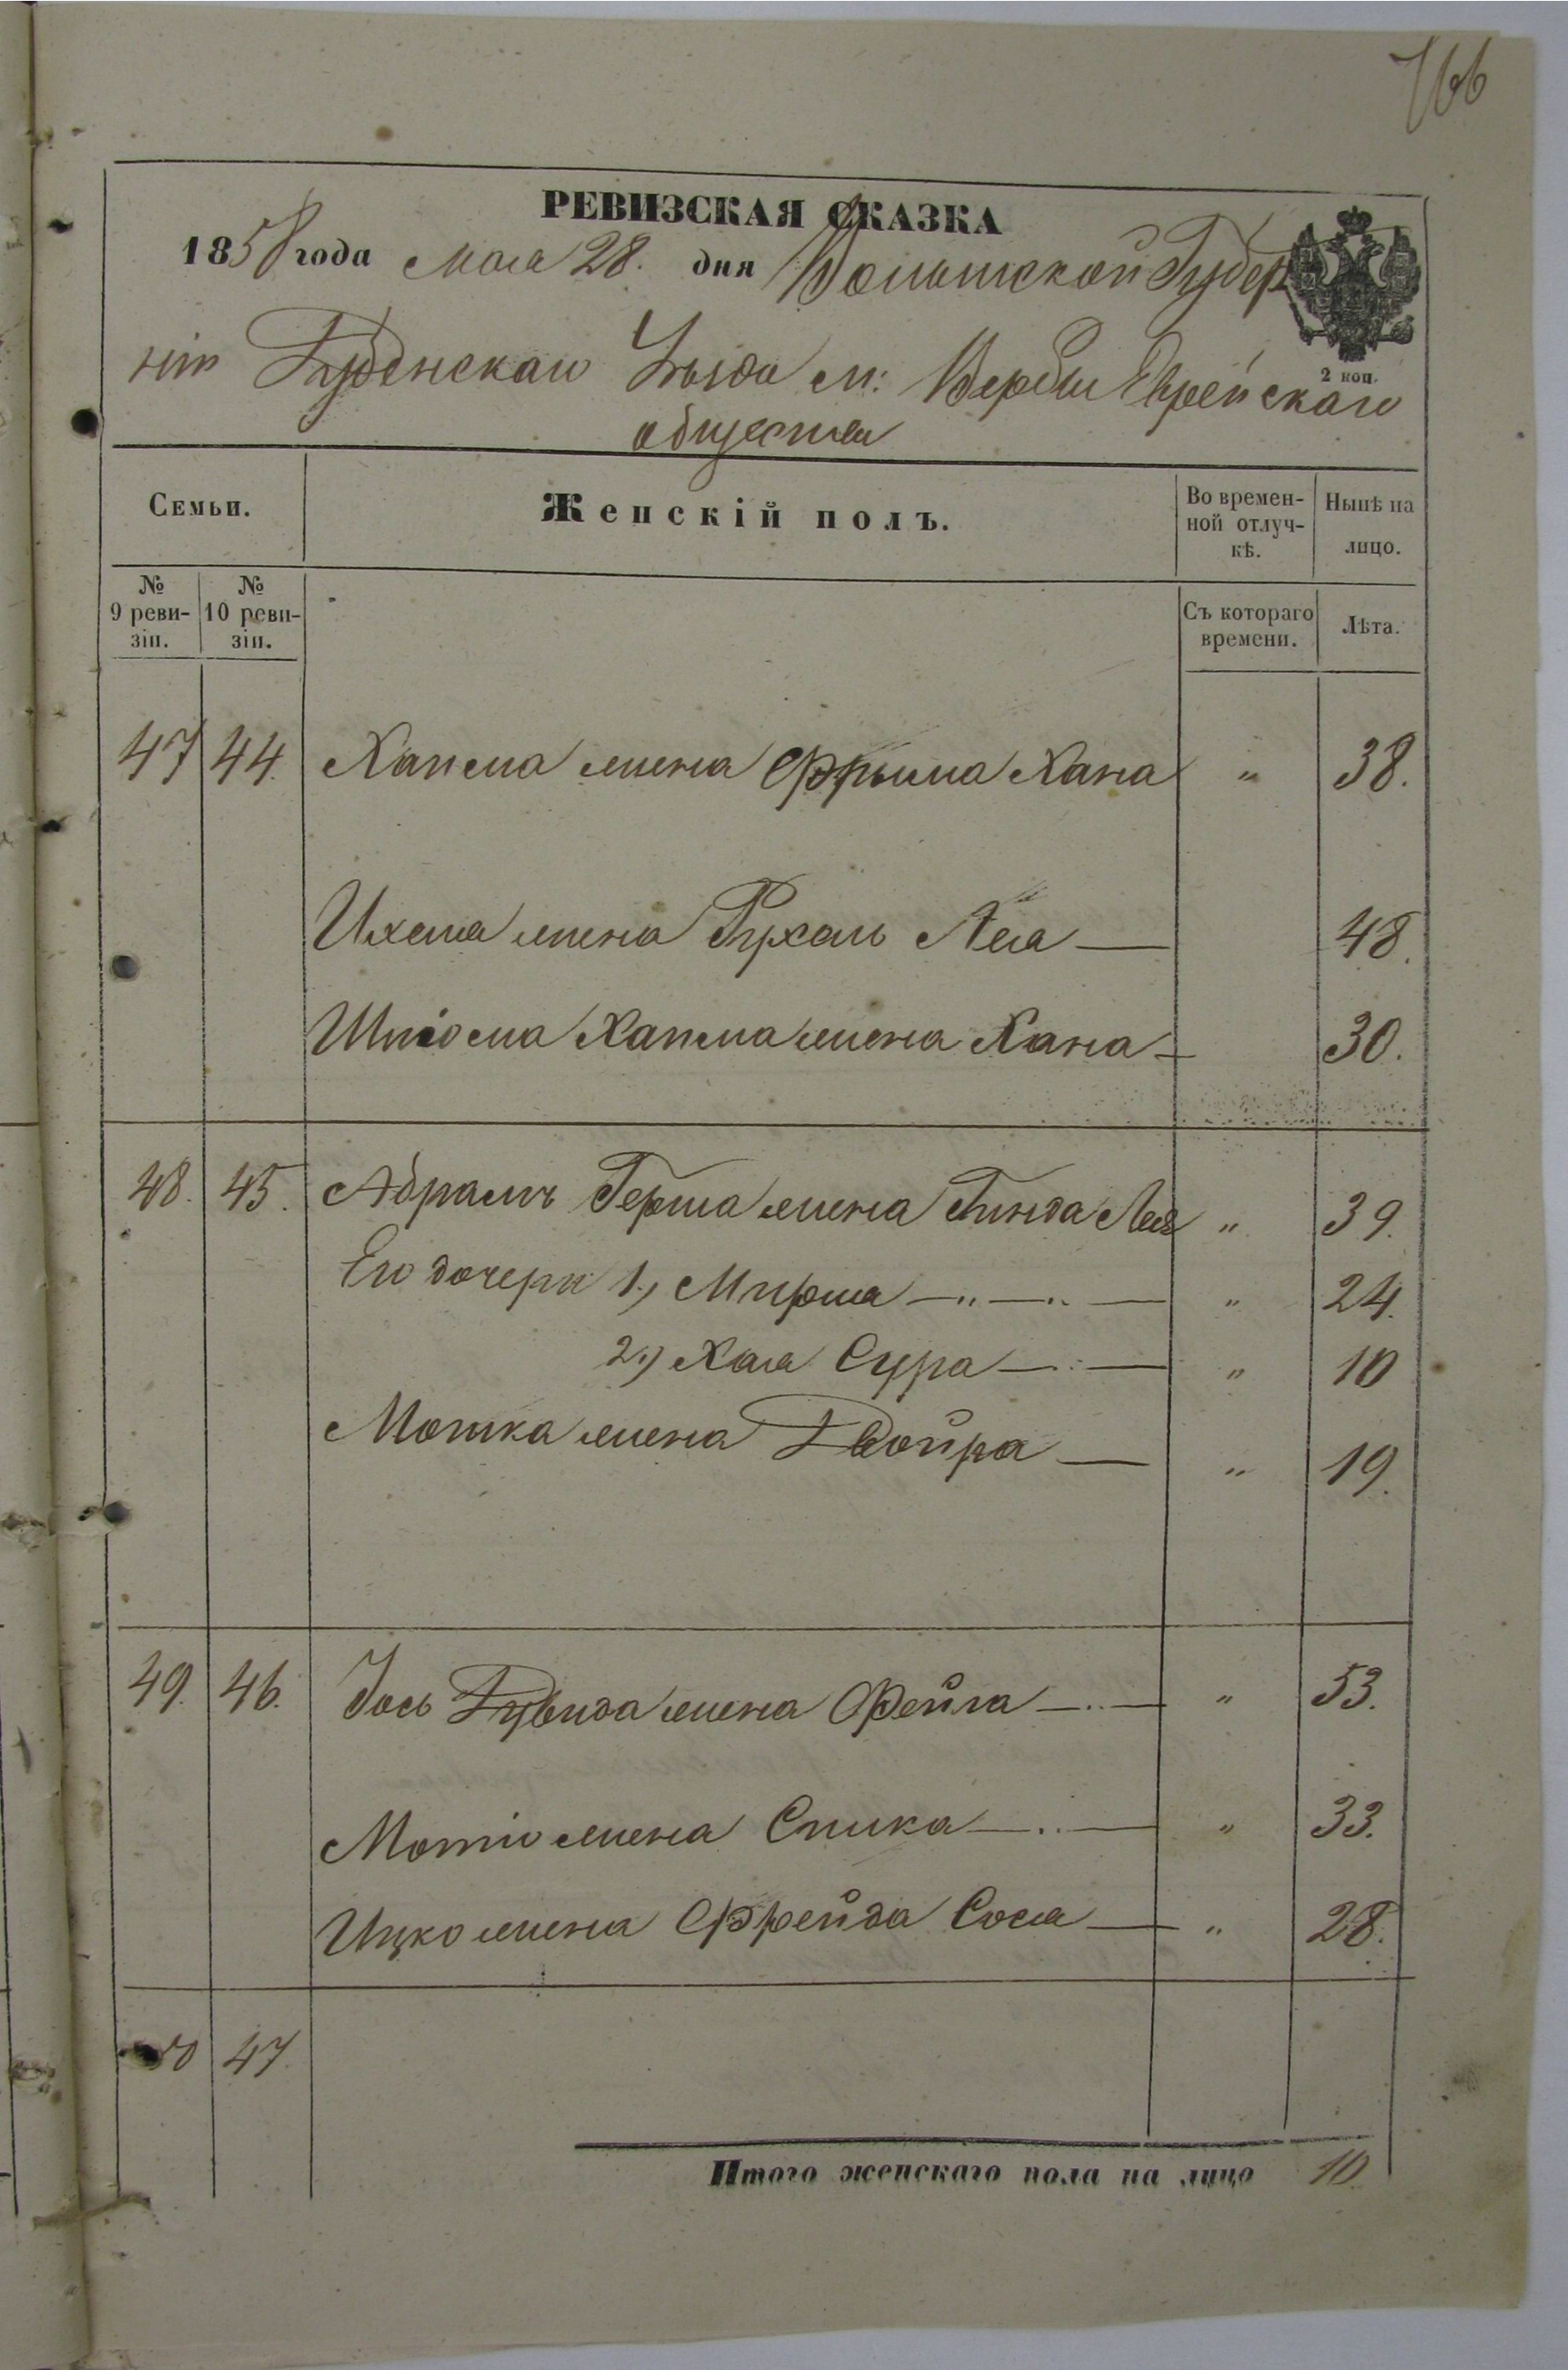 166
РЕВИЗСКАЯ СКАЗКА
1858 года мая 28. дня Волынской Губер
ніи Дубенскаго Уѣзда м: Вербы Еврейскаго
2 коп.
общества
Семьи. Женскій полъ. Во времен-ной отлуч-кѣ. Нынѣ на лицо.
№ 9 реви-зіи. № 10 реви-зіи. Съ котораго времени. Лѣта.
47 44. жена Фрыма Хана " 38.
жена Рухель Леа — 48.
жена Хана — 30.
48. 45. Абрамъ Герша жена Гинда Лея " 39.
Его дочери 1.) Мирша —"—"— " 24.
2.) Хая Сура —.— " 10
Мошка жена Двойра — " 19.
49. 46. Іось Дувида жена Фейга —..— " 53.
Мотіо жена —..— " 33.
Ицко жена Фрейда Сося — " 28.
50 47.
Итого женскаго пола на лицо 10.